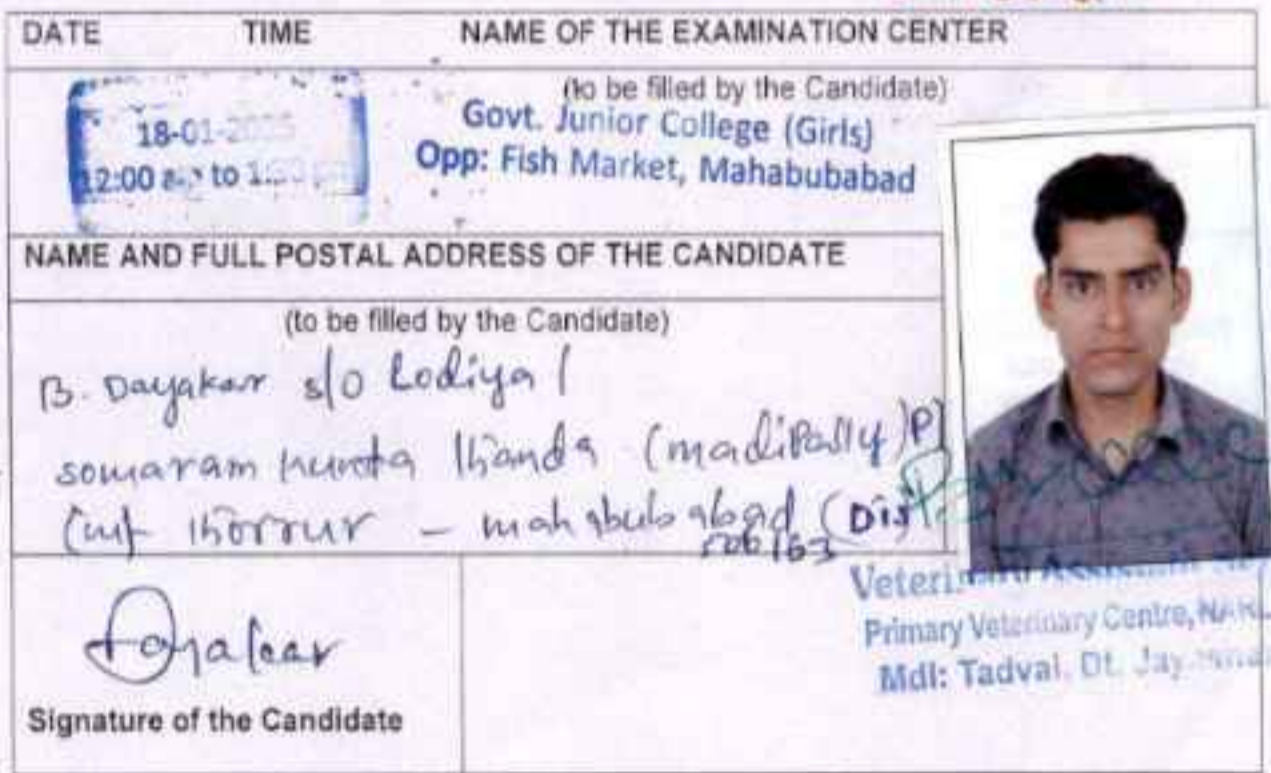 DATE TIME NAME OF THE EXAMINATION CENTER
(to be filled by the Candidate)
18-01-
12:00 to
Govt. Junior College (Girls)
Opp: Fish Market, Mahabubabad
NAME AND FULL POSTAL ADDRESS OF THE CANDIDATE
(to be filled by the Candidate)
B. Dayakar s/o Lodiya
somaram kunta thanda (madipally)
thorrur - mahabubabad (Dis
506163
Dayakar
Signature of the Candidate
Primary Veterinary Centre,
Mdl: Tadvai, Dt.